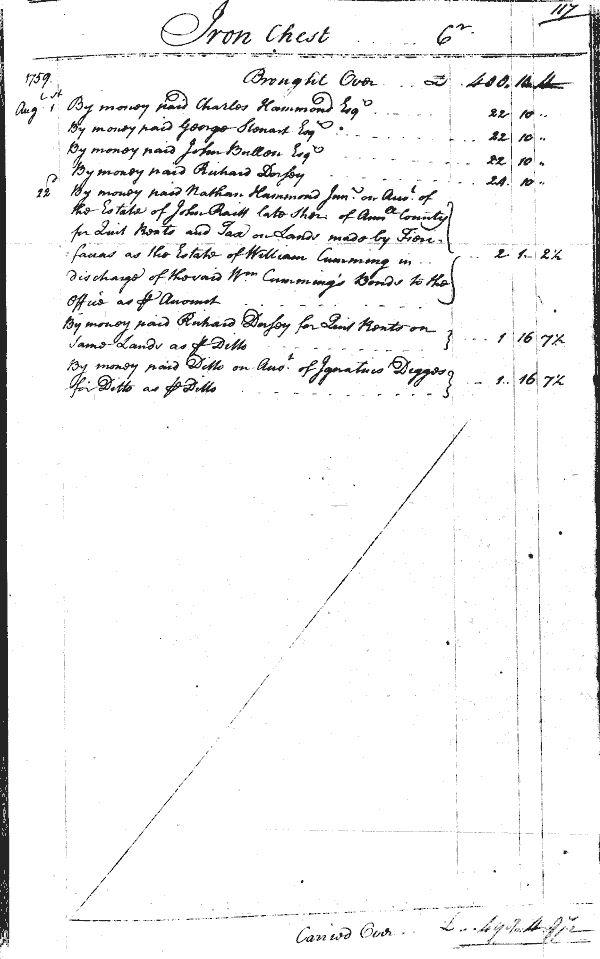 117
Iron Chest . . . . . . Cr.
1759 Brought Over £ 400.
Augt 1st By money paid Charles Hammond Esqr . . . 22 10 "
By money paid George Steuart Esqr . . . 22 10 "
By money paid John Bullen Esqr . . . 22 10 "
By money paid Richard Dorsey . . . 24 10 "
22d By money paid Nathan Hammond Junr on Accot of
the Estate of John Raitt late Sher. of Annll County
for Quit Rents and Tax on Lands made by Fiere-
facias as the Estate of William Cumming in . . . 2 1 2½
discharge of the said Wm Cumming's Bonds to the
Office as ⅌ Account
By money paid Richard Dorsey for Quit Rents on
same Lands as ⅌ Ditto . . . 1 16 7½
By money paid Ditto on Accot of Ignatius Digges
for Ditto as ⅌ Ditto . . . 1 16 7½
Carried Over . . £